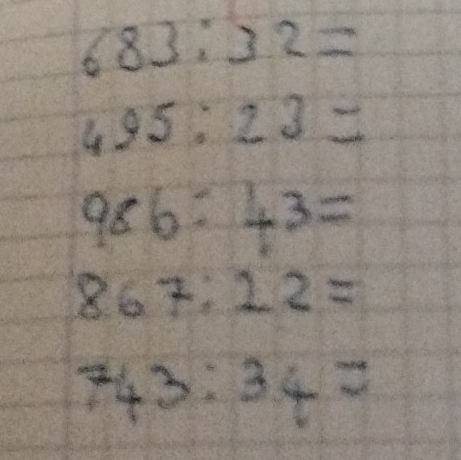 683:32=
495:23=
986:43=
867:22=
743:34=